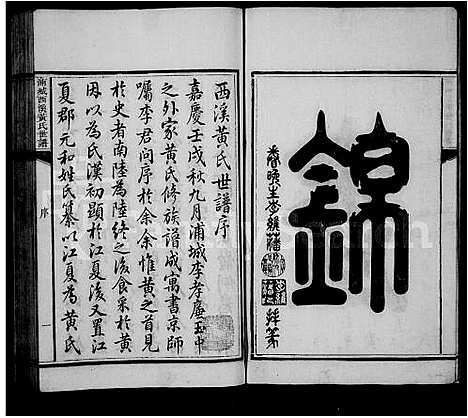 錦
眷晚生李
拜篆
西溪黃氏世譜序
嘉慶壬戌秋九月浦城李孝廉玉中
之外家黃氏修族譜成寓書京師
囑李君問序於余余惟黃之首見
於史者南陸為陸終之後食采於黃
因以為氏漢初顯於江夏後又置江
夏郡元和姓氏纂以江夏為黃氏
浦城西溪黃氏世譜
序
一